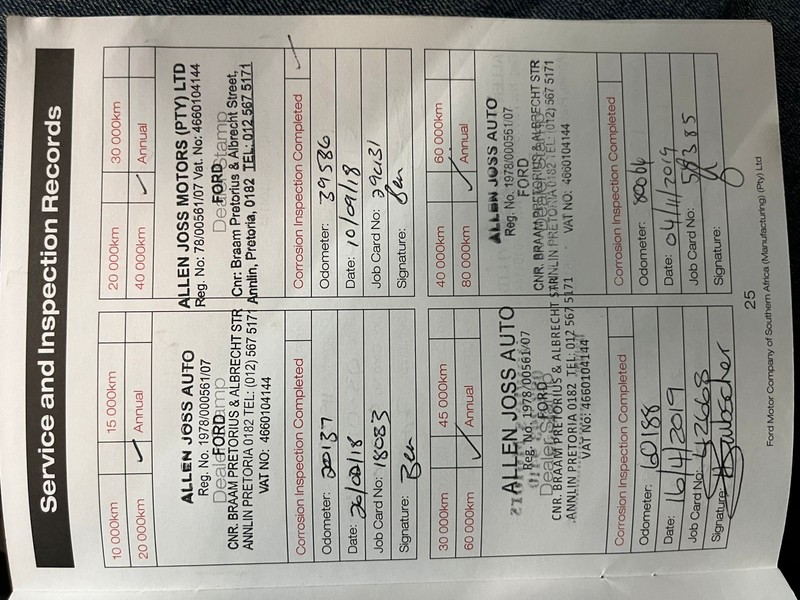 Service and Inspection Records
10 000km 15 000km
20 000km ✓ Annual
ALLEN JOSS AUTO
Reg. No. 1978/000561/07
Dealer Stamp
FORD
CNR. BRAAM PRETORIUS & ALBRECHT STR
ANNLIN PRETORIA 0182 TEL: (012) 567 5171
VAT NO: 4660104144
Corrosion Inspection Completed
Odometer: 20137
Date: 20/02/18
Job Card No: 18083
Signature: Ben
20 000km 30 000km
40 000km ✓ Annual
ALLEN JOSS MOTORS (PTY) LTD
Reg. No: 78/00561/07 Vat. No: 4660104144
FORD
Dealer Stamp
Cnr: Braam Pretorius & Albrecht Street,
Annlin, Pretoria, 0182 TEL: 012 567 5171
Corrosion Inspection Completed ✓
Odometer: 39586
Date: 10/09/18
Job Card No: 29031
Signature: Ben
30 000km 45 000km
60 000km ✓ Annual
ALLEN JOSS AUTO
Reg. No. 1978/000561/07
FORD
Dealer Stamp
CNR. BRAAM PRETORIUS & ALBRECHT STR
ANNLIN PRETORIA 0182 TEL: 012 567 5171
VAT NO: 4660104144
Corrosion Inspection Completed
Odometer: 60188
Date: 16/4/2019
Job Card No: 42668
Signature:
40 000km 60 000km
80 000km ✓ Annual
ALLEN JOSS AUTO
Reg. No. 1978/000561/07
FORD
CNR. BRAAM PRETORIUS & ALBRECHT STR
ANNLIN PRETORIA 0182 TEL: (012) 567 5171
VAT NO: 4660104144
Corrosion Inspection Completed
Odometer: 80064
Date: 04/11/2019
Job Card No: 58385
Signature:
25
Ford Motor Company of Southern Africa (Manufacturing) (Pty) Ltd